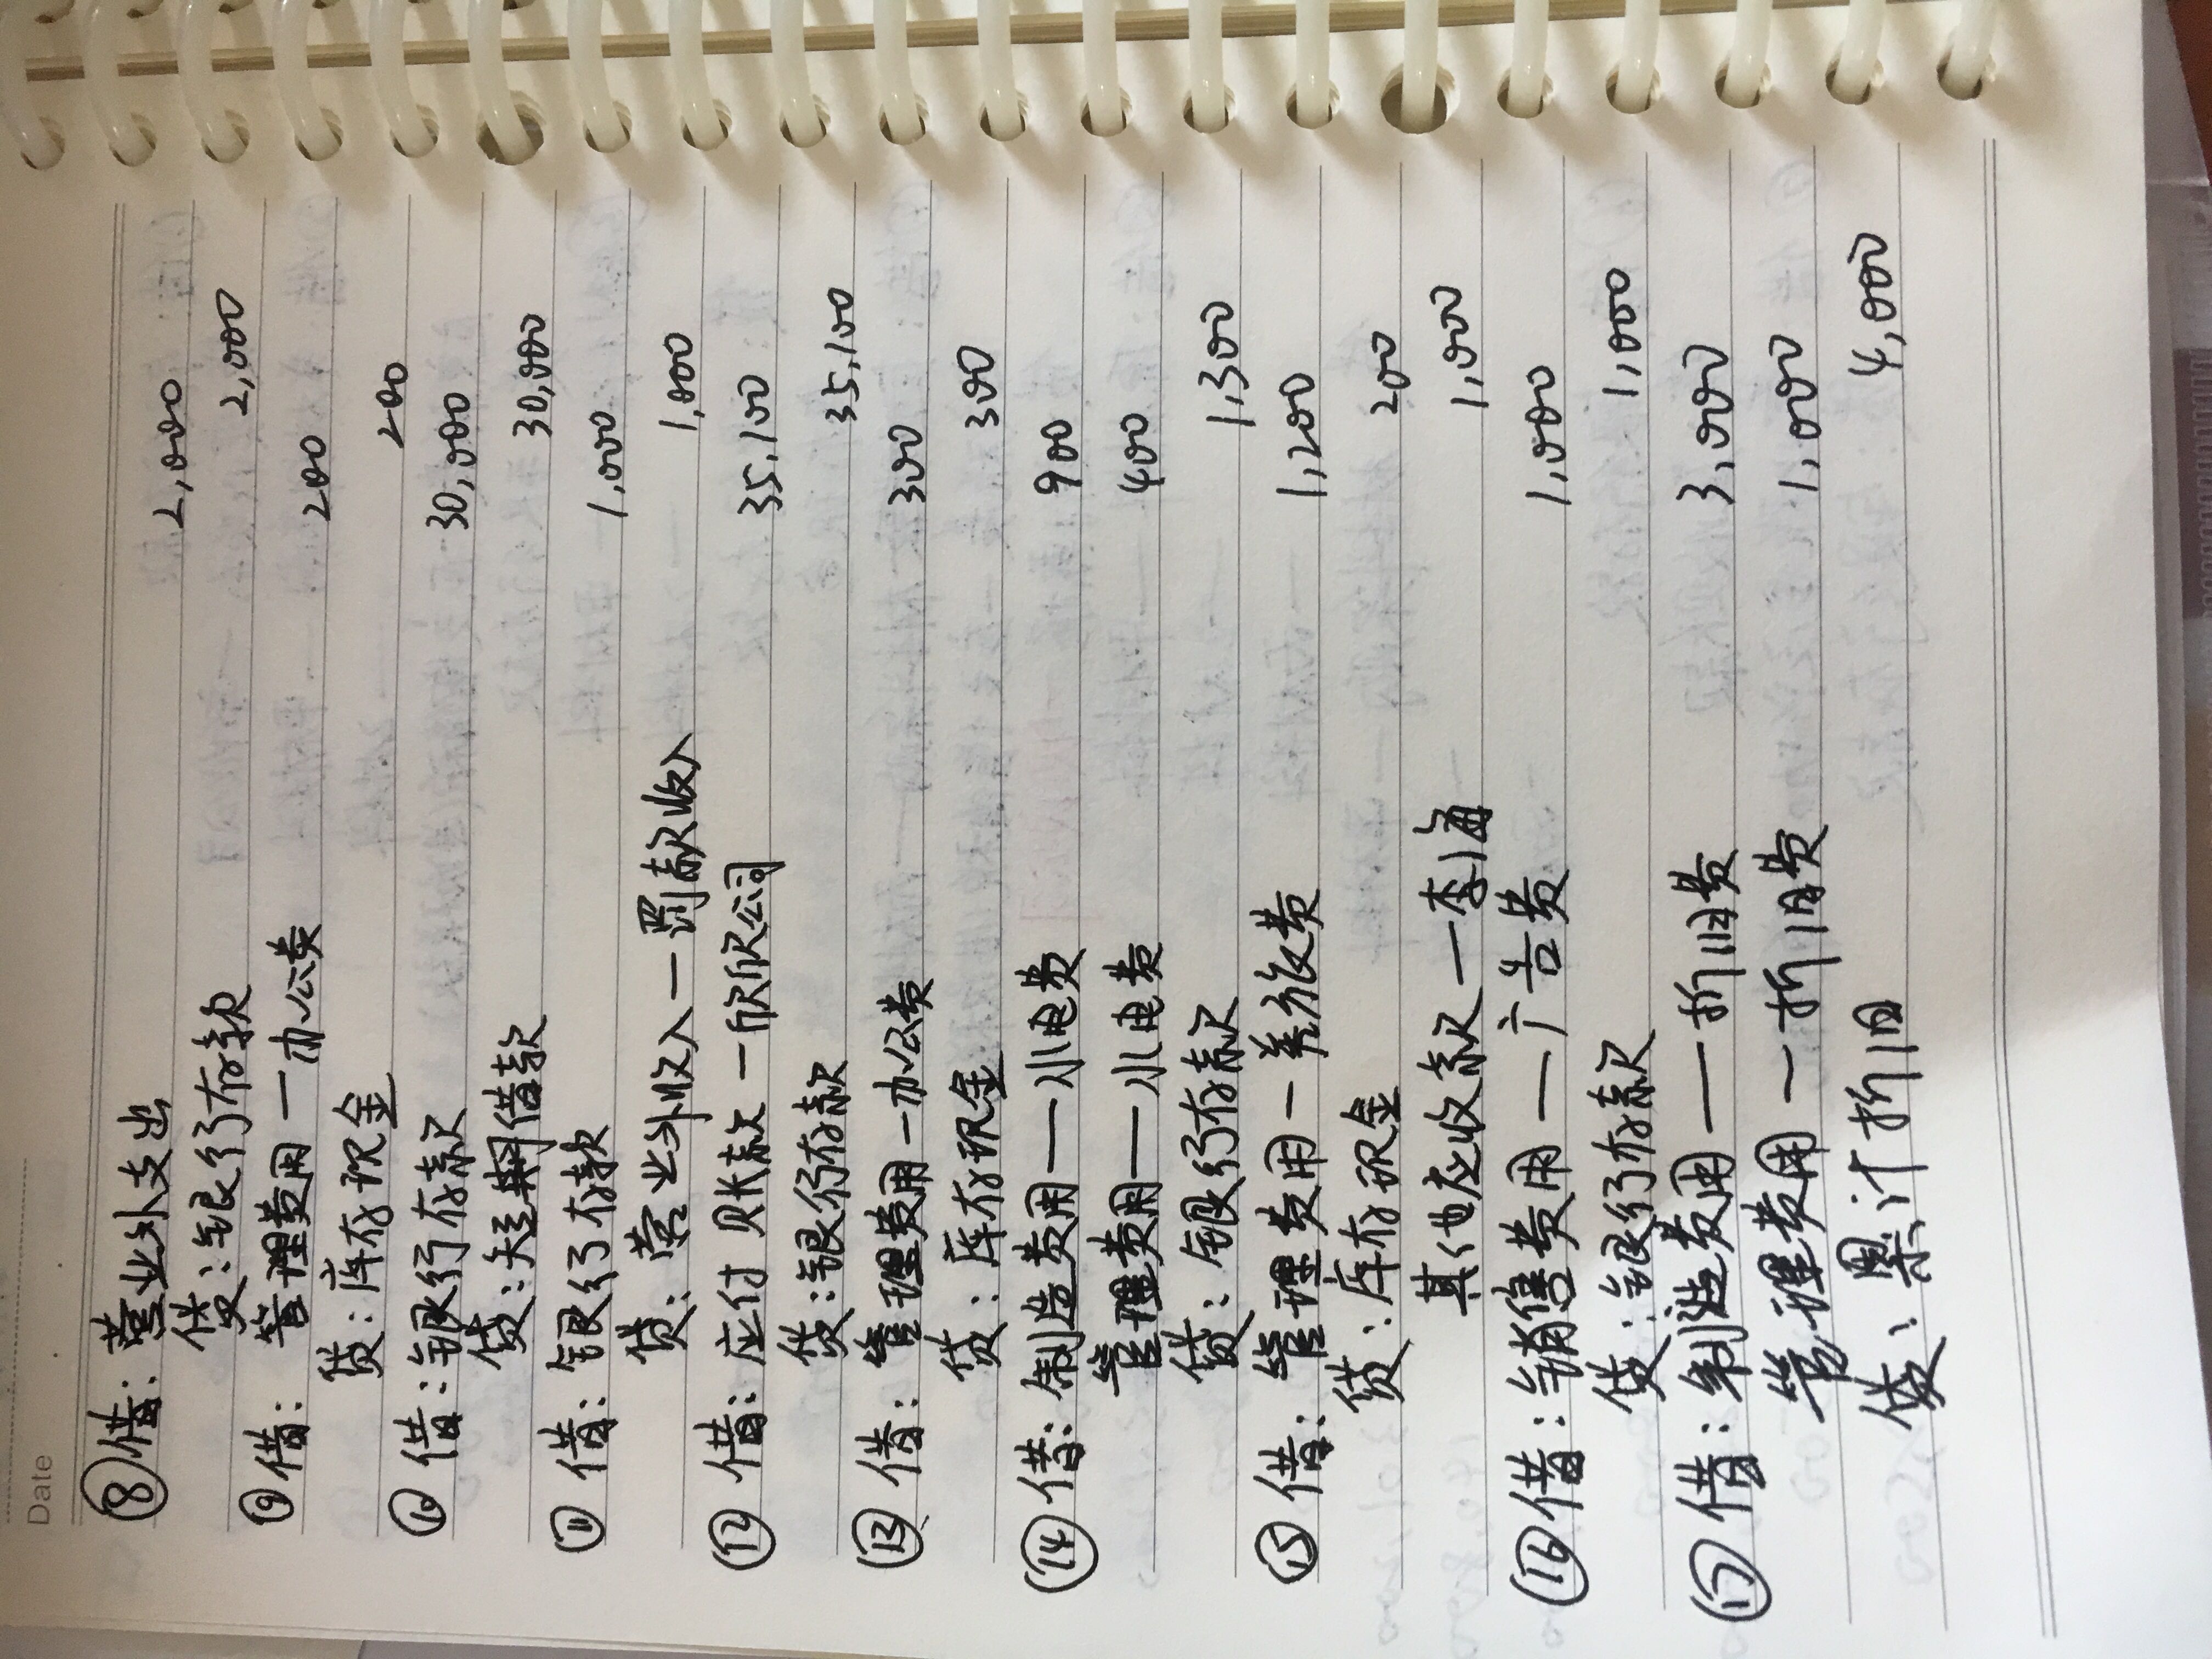 Date
⑧借：营业外支出 2,000
贷：银行存款 2,000
⑨借：管理费用一办公费 200
贷：库存现金 200
⑩借：银行存款 30,000
贷：短期借款 30,000
⑪借：银行存款 1,000
贷：营业外收入一罚款收入 1,000
⑫借：应付账款一欣欣公司 35,100
贷：银行存款 35,100
⑬借：管理费用一办公费 300
贷：库存现金 300
⑭借：制造费用——水电费 900
管理费用——水电费 400
贷：银行存款 1,300
⑮借：管理费用一差旅费 1,200
贷：库存现金 200
其他应收款一李海 1,000
⑯借：销售费用——广告费 1,000
贷：银行存款 1,000
⑰借：制造费用——折旧费 3,000
管理费用一折旧费 1,000
贷：累计折旧 4,000